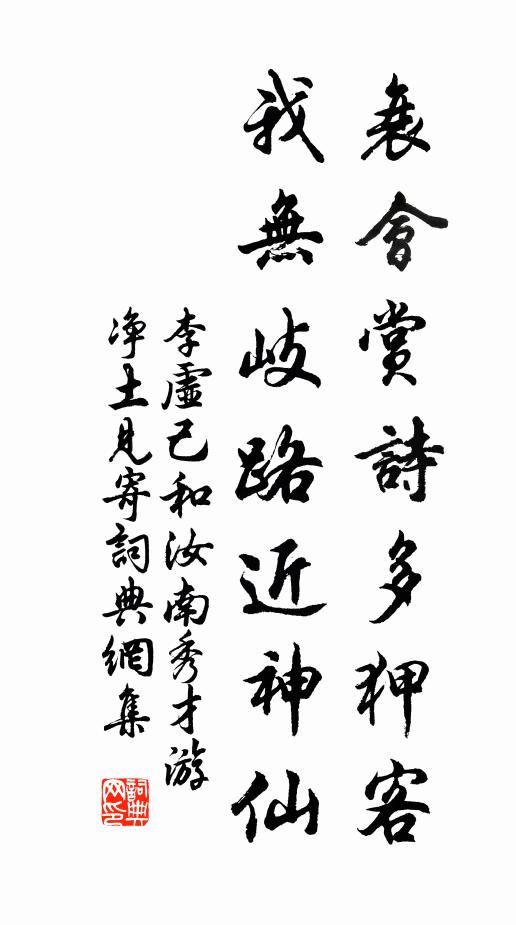 會賞詩多狎客
我無岐路近神仙
李虛己和汝南秀才游
净土見寄詞典網集
詞典
网印